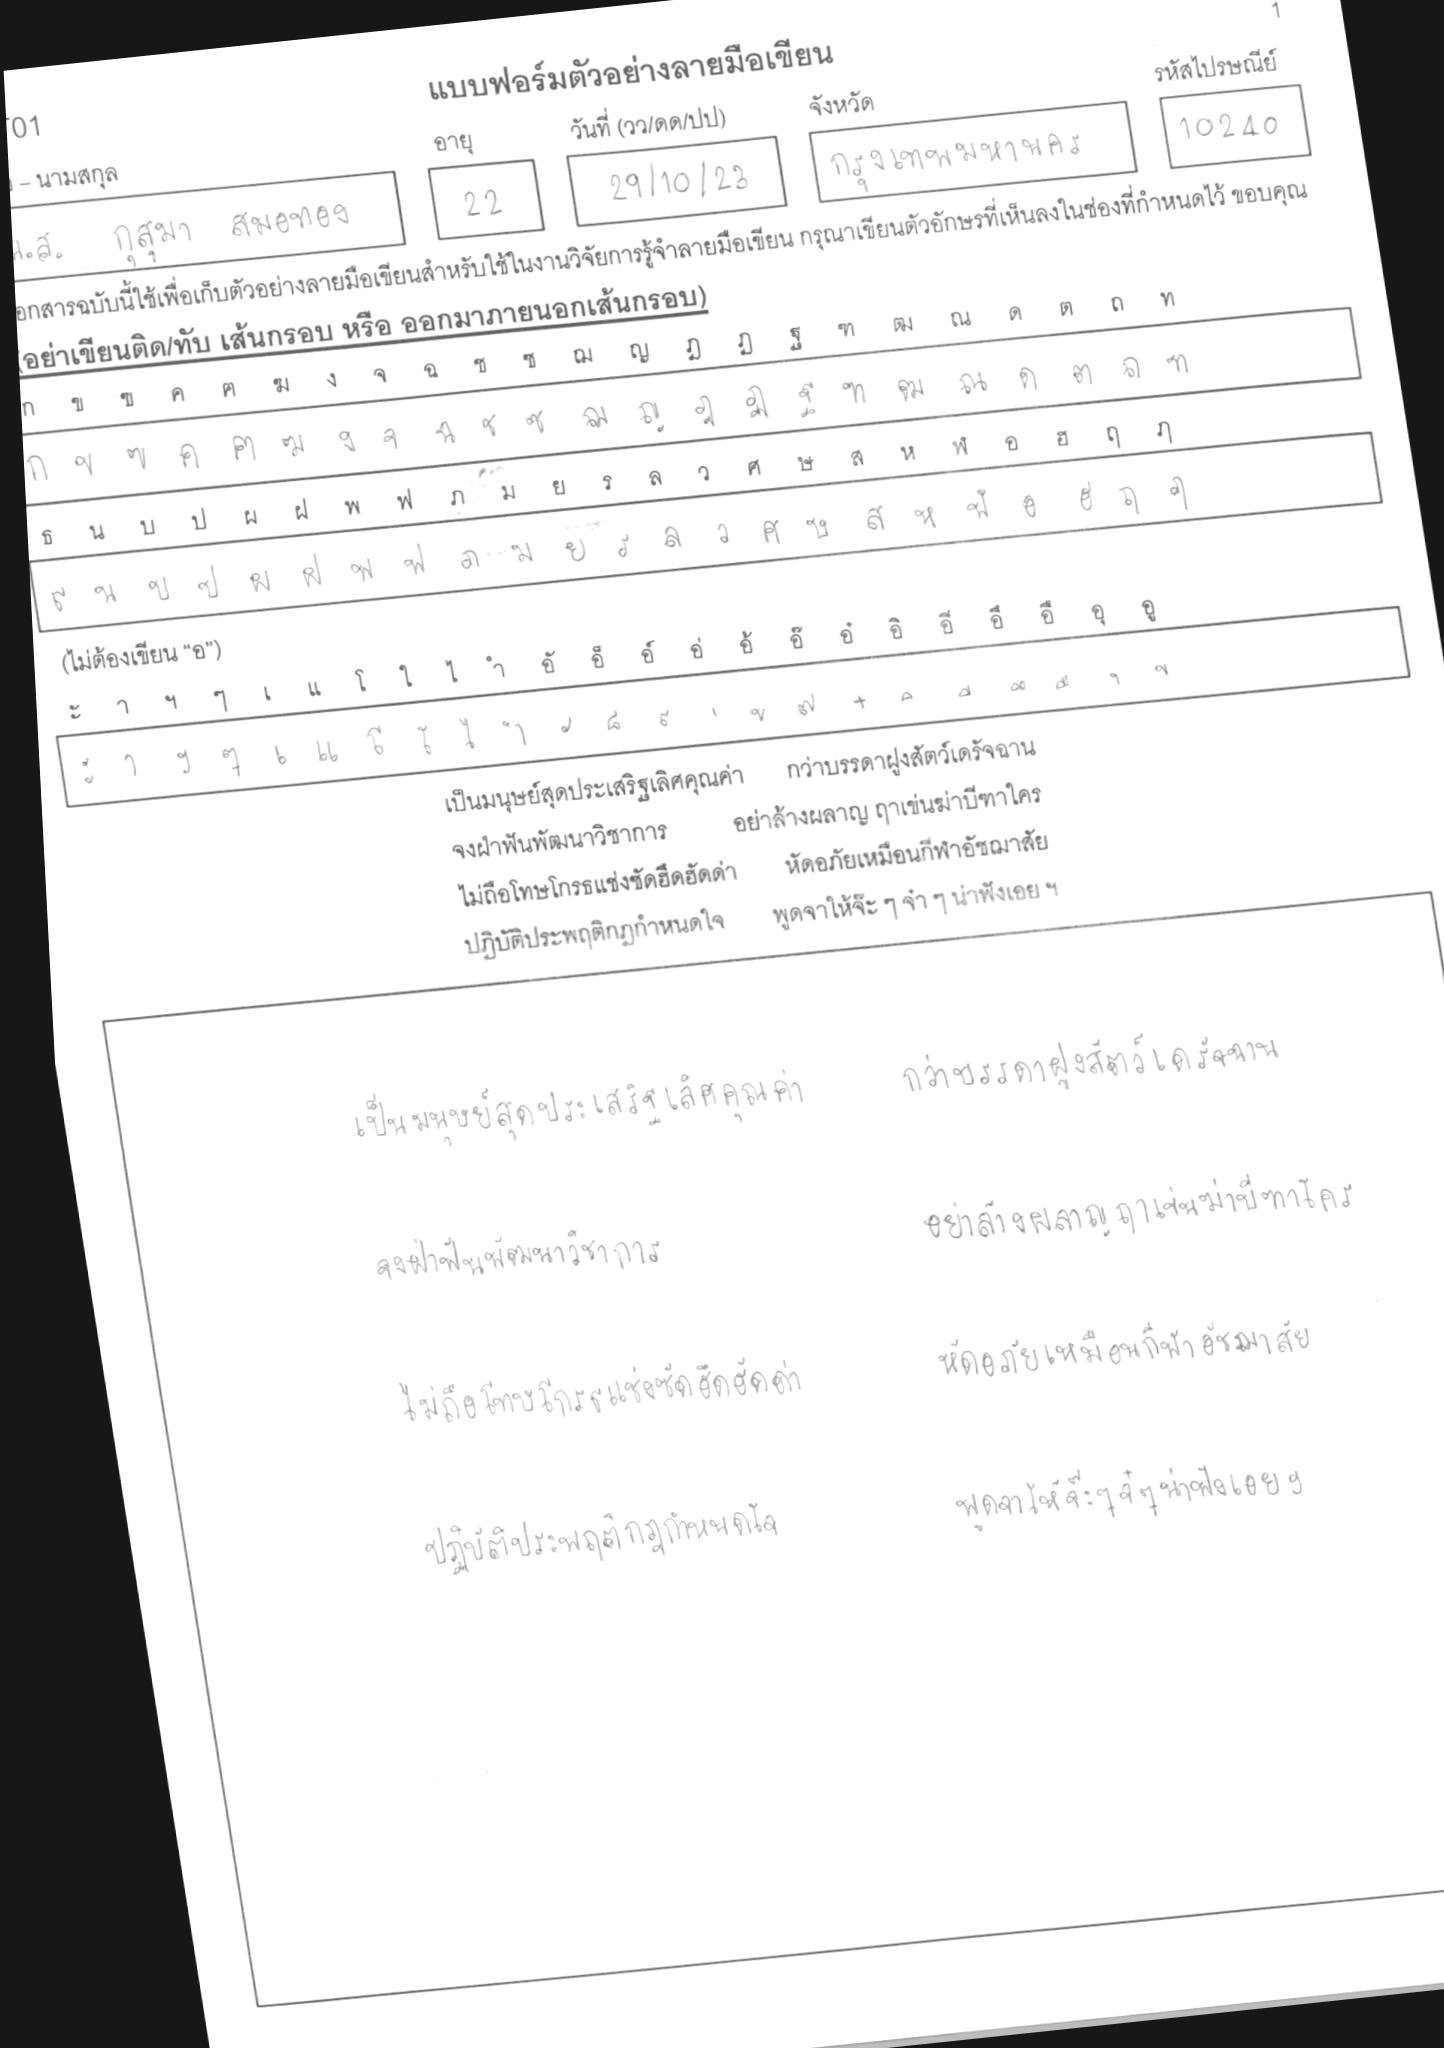 1
แบบฟอร์มตัวอย่างลายมือเขียน
T01
– นามสกุล อายุ วันที่ (วว/ดด/ปป) จังหวัด รหัสไปรษณีย์
น.ส. กุสุมา สมอทอง 22 29/10/23 กรุงเทพมหานคร 10240
อกสารฉบับนี้ใช้เพื่อเก็บตัวอย่างลายมือเขียนสำหรับใช้ในงานวิจัยการรู้จำลายมือเขียน กรุณาเขียนตัวอักษรที่เห็นลงในช่องที่กำหนดไว้ ขอบคุณ
(อย่าเขียนติด/ทับ เส้นกรอบ หรือ ออกมาภายนอกเส้นกรอบ)
ก ข ฃ ค ฅ ฆ ง จ ฉ ช ซ ฌ ญ ฎ ฏ ฐ ฑ ฒ ณ ด ต ถ ท
ก ข ฃ ค ฅ ฆ ง จ ฉ ช ซ ฌ ญ ฎ ฏ ฐ ฑ ฒ ณ ด ต ถ ท
ธ น บ ป ผ ฝ พ ฟ ภ ม ย ร ล ว ศ ษ ส ห ฬ อ ฮ ฤ ฦ
ธ น บ ป ผ ฝ พ ฟ ภ ม ย ร ล ว ศ ษ ส ห ฬ อ ฮ ฤ ฦ
(ไม่ต้องเขียน “อ”)
ะ า ฯ ๆ เ แ โ ใ ไ ำ อั อ็ อ์ อ่ อ้ อ๊ อ๋ อิ อี อึ อื อุ อู
ะ า ฯ ๆ เ แ โ ใ ไ ำ ั ็ ์ ่ ้ ๊ ๋ ิ ี ึ ื ุ ู
เป็นมนุษย์สุดประเสริฐเลิศคุณค่า กว่าบรรดาฝูงสัตว์เดรัจฉาน
จงฝ่าฟันพัฒนาวิชาการ อย่าล้างผลาญ ฤาเข่นฆ่าบีฑาใคร
ไม่ถือโทษโกรธแช่งซัดฮึดฮัดด่า หัดอภัยเหมือนกีฬาอัชฌาสัย
ปฏิบัติประพฤติกฎกำหนดใจ พูดจาให้จ๊ะ ๆ จ๋า ๆ น่าฟังเอย ฯ
เป็นมนุษย์สุดประเสริฐเลิศคุณค่า กว่าบรรดาฝูงสัตว์เดรัจฉาน
จงฝ่าฟันพัฒนาวิชาการ อย่าล้างผลาญฤาเข่นฆ่าบีฑาใคร
ไม่ถือโทษโกรธแช่งซัดฮึดฮัดด่า หัดอภัยเหมือนกีฬาอัชฌาสัย
ปฏิบัติประพฤติกฎกำหนดใจ พูดจาให้จ๊ะๆจ๋ๆน่าฟังเอยฯ